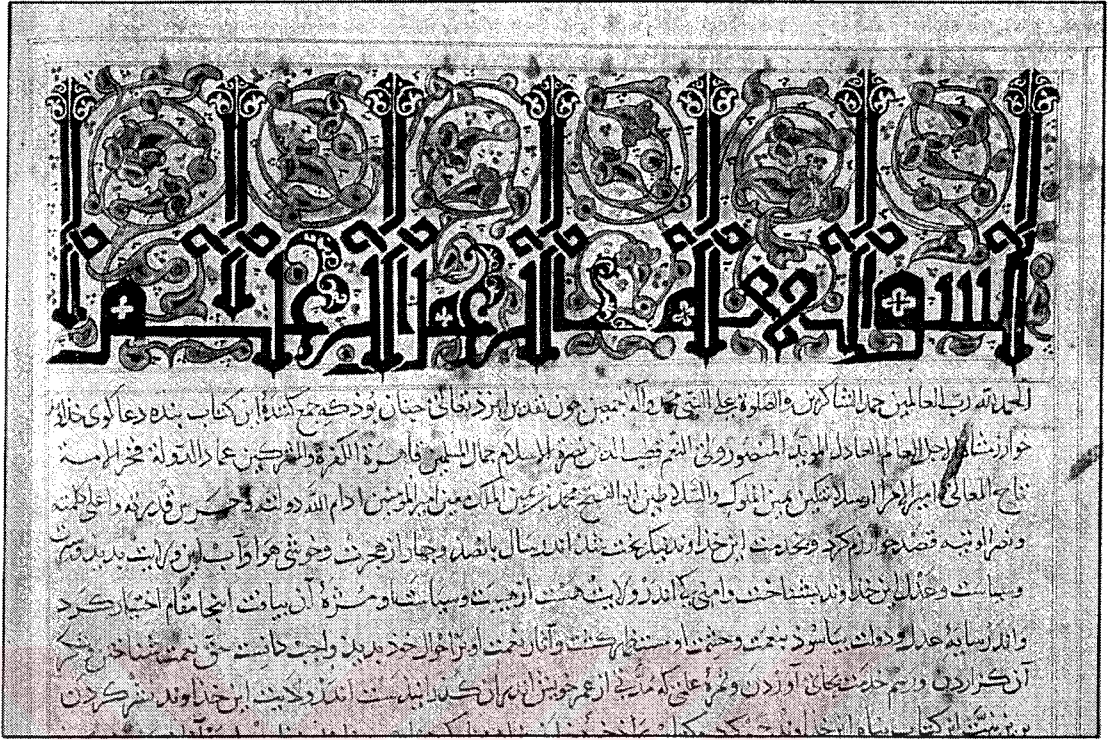 بسم الله الرحمن الرحيم
الحمد لله رب العالمين حمد الشاكرين والصلوة على النبي محمد وآله اجمعين چون تقدير ايزد تعالى چنان بوذ كه جمع كننده اين كتاب بنده دعا كوى خداوند
خوارزمشاه الاجل العالم العادل المويد المنصور ولى النعم قطب الدين نصرة الاسلام جمال المسلمين قامع الكفرة والمشركين عماد الدولة فخر الامة
تاج المعالى امير الامرا ارسلانتكين يمين الملوك والسلاطين ابو الفتح محمد بن يمين الملك معين امير المومنين ادام الله دولته وحرس قدرته واعلى كلمته
ونصر قصد خوارزم كرد وبخدمت اين خذاوند نيكبخت شد اندر سال بانصد وچهار از هجرت وخوشى هوا وآب اين ولايت بديد
وسياست وعدل اين خذاوند بشناخت وامنى كه اندر ولايت هست از هيبت وسياست او آن بيافت اينجا مقام اختيار كرد
واندر سايه عدل ودولت بياسوذ بنعمت وحشمت او مستظهر كشت وآثار نعمت او بر احوال خود بديذ واجب دانست حق نعمت شناختن وشكر
آن كزاردن ورسم خدمت بجاى آوردن وثمره علمى كه مدتى از عمر خويش اندر آن اندر ولايت اين خذاوند نشر كردن